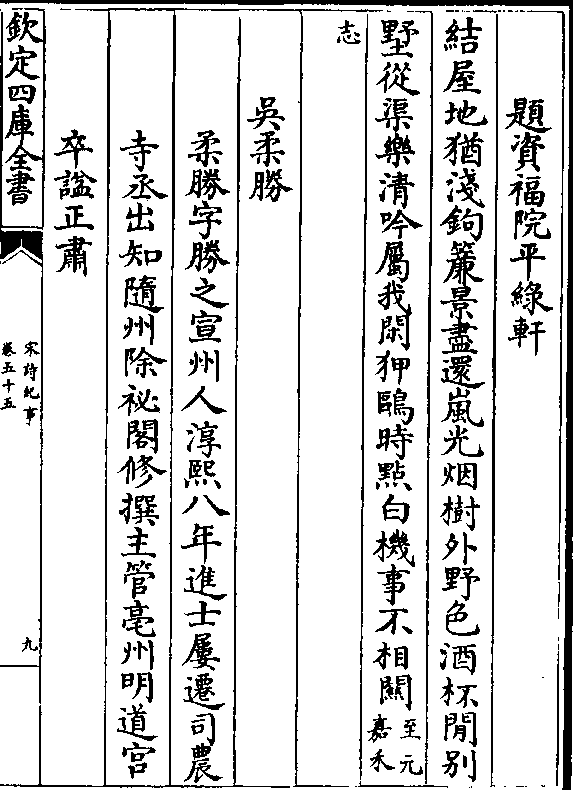 題資福院平綠軒
結屋地猶淺鉤簾景盡還嵐光烟樹外野色酒杯閒别
墅從渠樂清吟屬我閑狎鷗時點白機事不相關至元
嘉禾
志
吳柔勝
柔勝字勝之宣州人淳熙八年進士屢遷司農
寺丞出知隨州除祕閣修撰主管亳州明道宮
卒諡正肅
欽定四庫全書
宋詩紀事
卷五十五
九